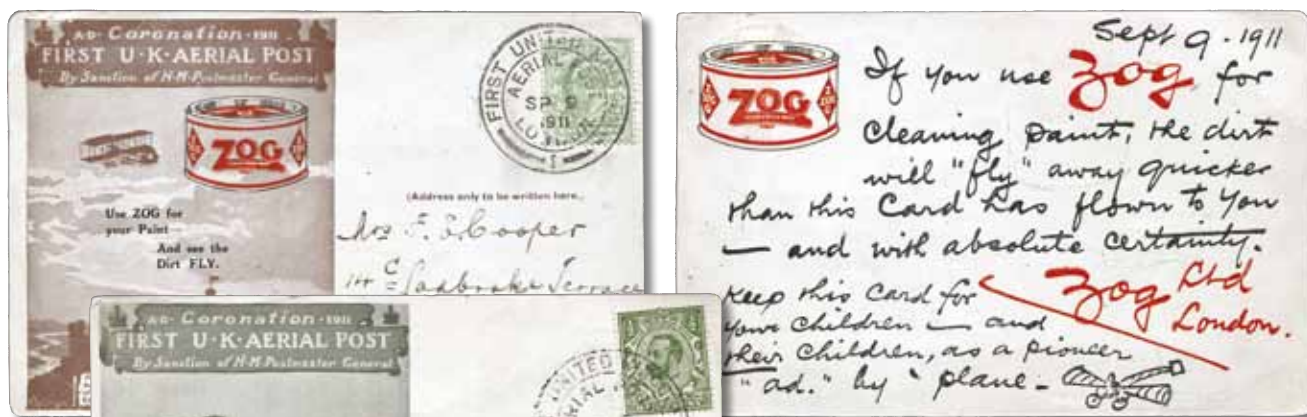 A·D· Coronation · 1911
FIRST U·K·AERIAL POST
By Sanction of H·M·Postmaster General
ZOG
Use ZOG for
your Paint
And see the
Dirt FLY.
FIRST UNITED
AERIAL
SP 9
1911
LONDON
1
(Address only to be written here.
Mrs F. E. Cooper
Ladbroke Terrace
A·D· Coronation · 1911
FIRST U·K·AERIAL POST
By Sanction of H·M·Postmaster General
UNITED
Sept 9 - 1911
ZOG
If you use Zog for
cleaning paint, the dirt
will "fly" away quicker
than this Card has flown to you
— and with absolute certainty.
Keep this Card for
your children — and
their children, as a pioneer
"ad." by 'plane -
Zog Ltd
London.